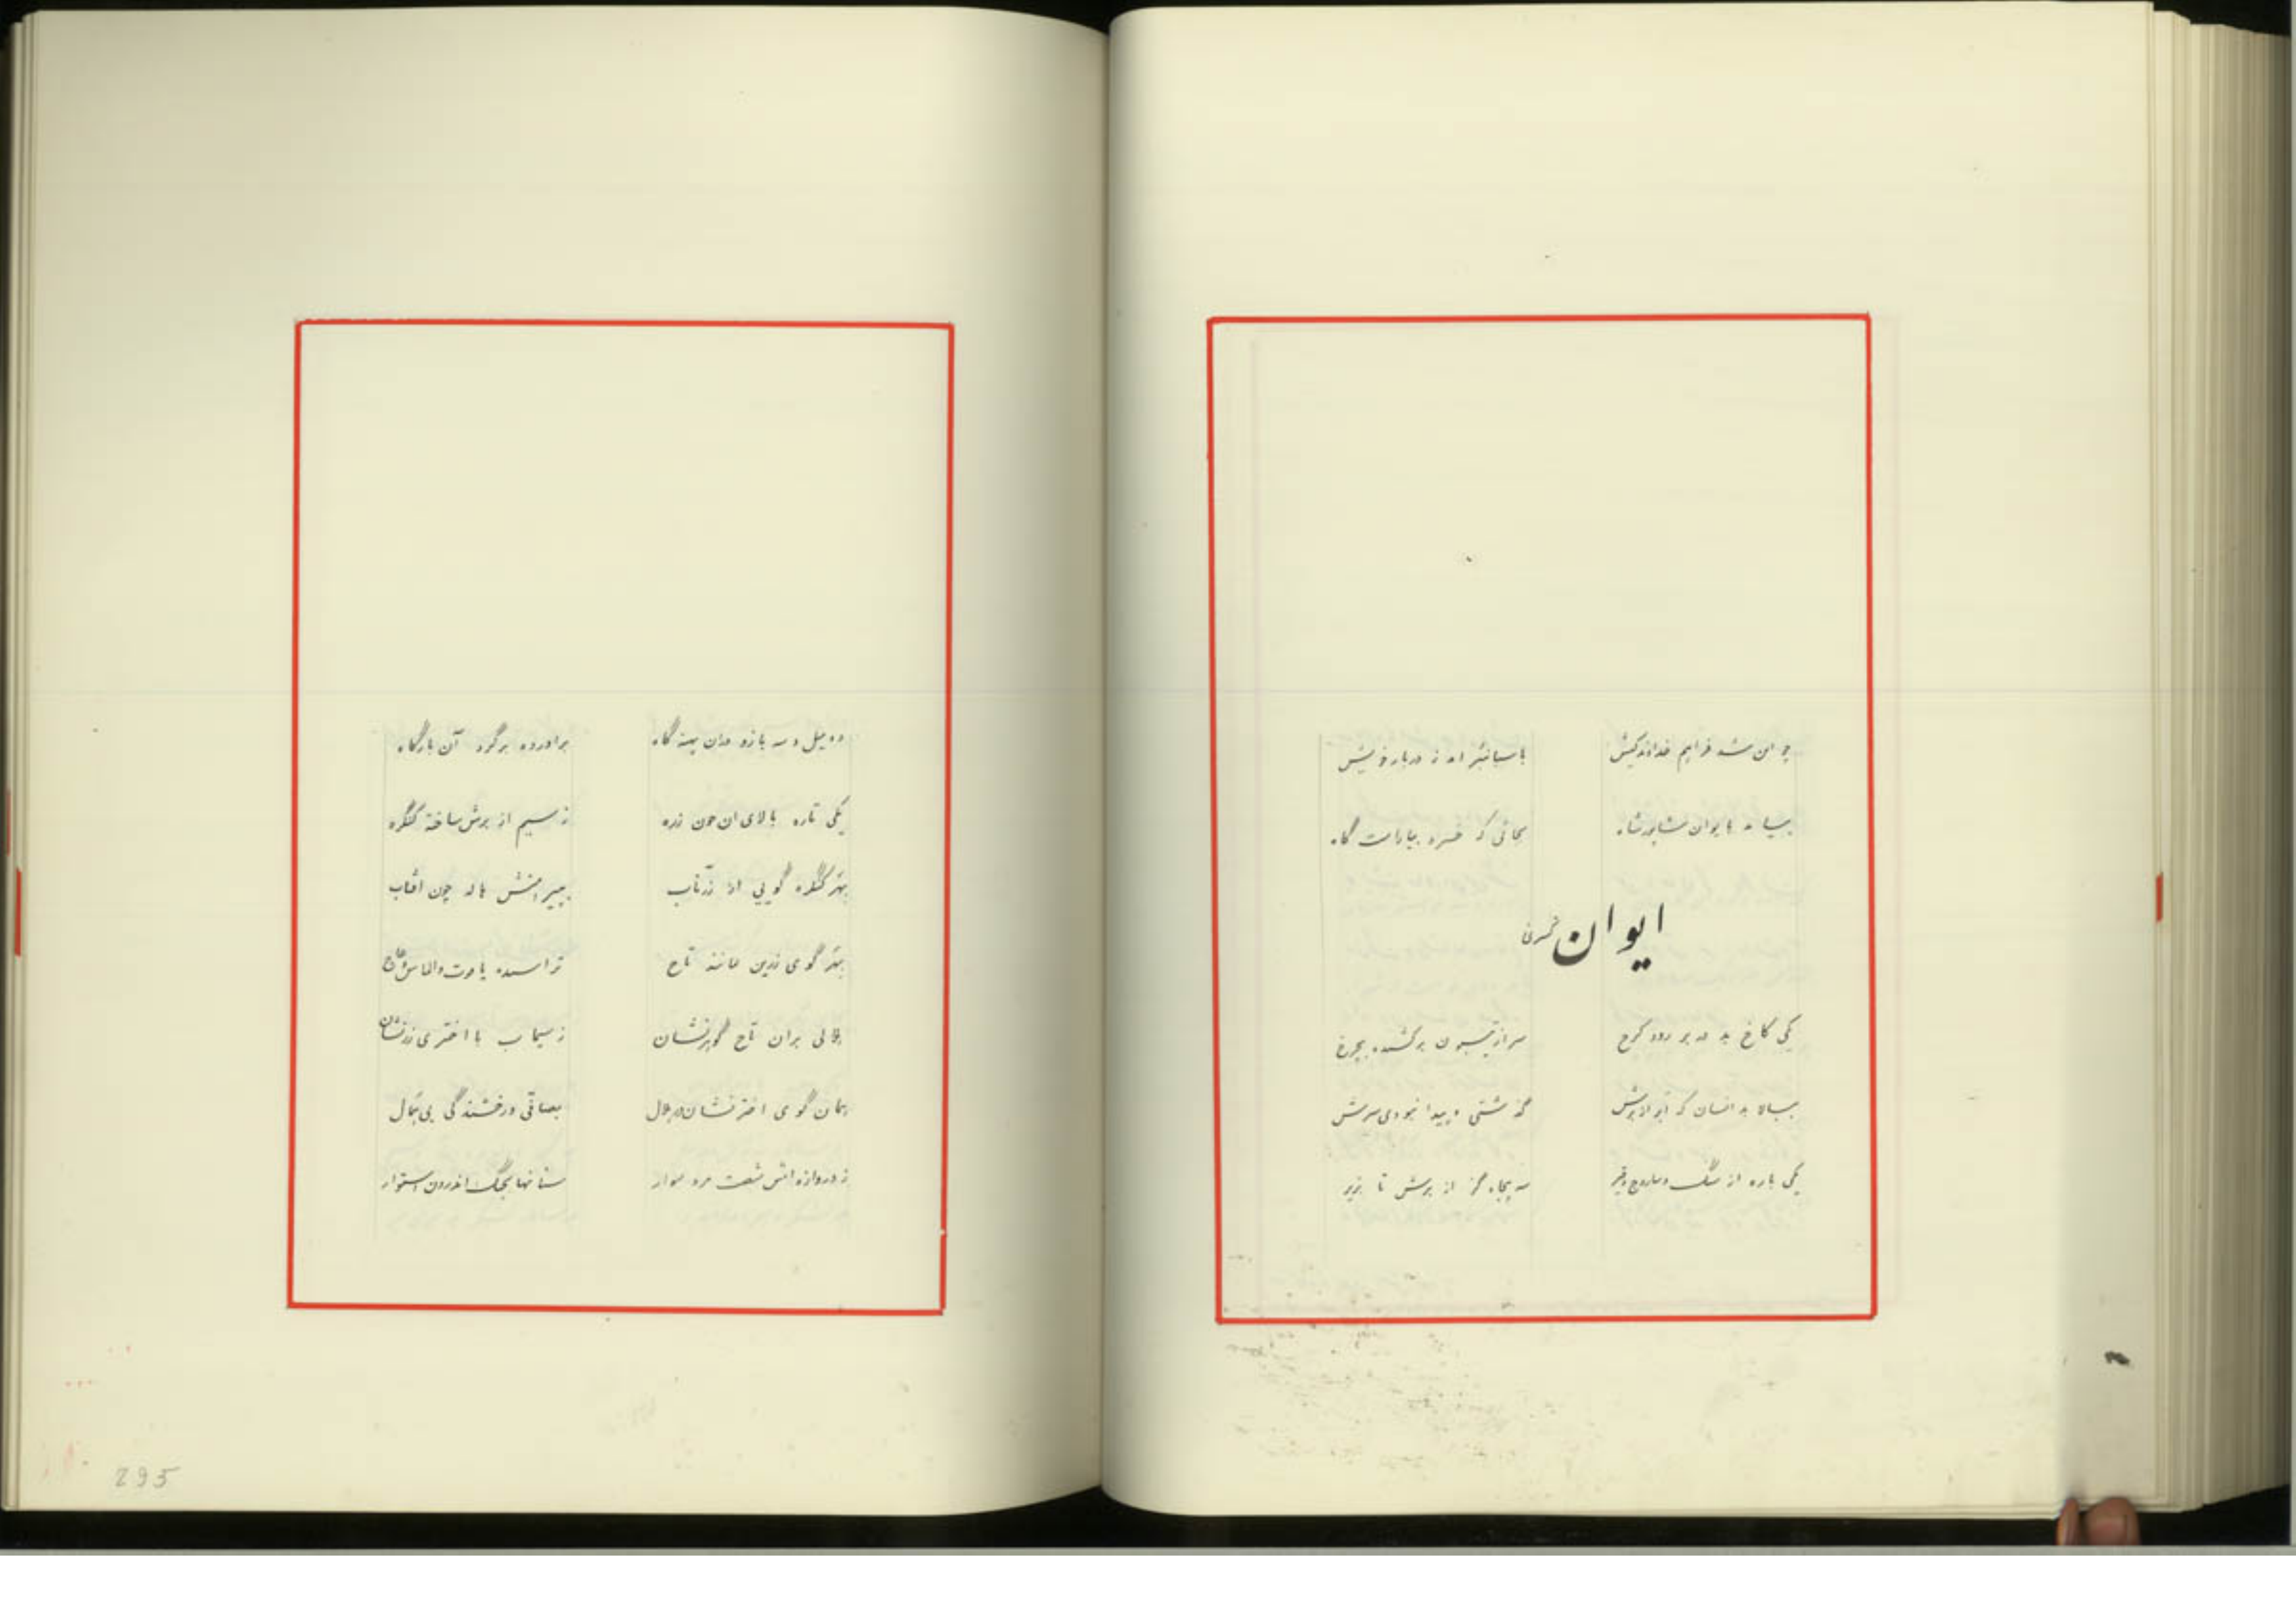 چو این شد فراهم خداوند کیش
باسبانبر آمد ز دربار خویش
بیامد بایوان شاپور شاه
بجائی که خسرو بیاراست گاه
ایوان
یکی کاخ بد در بر رود کرخ
سر از تیسبون برکشیده بچرخ
ببالا بد انسان که ابر از برش
گذشتی و پیدا نبودی سرش
یکی باره از سنگ و ساروج و قیر
سه پنجاه گز از برش تا بزیر
دو میل و سه بازو بدان پهنه گاه
برآورده برگرد آن بارگاه
یکی تاره بالای آن چون زره
ز سیم از برش ساخته کنگره
بهر کنگره گویی از زر ناب
بپیرامنش هاله چون آفتاب
بهر گوی زرین مانند تاج
تراشیده یاقوت والماس عاج
هلالی بران تاج گوهرنشان
ز سیماب با اختری زرنشان
همان گوی اخترنشان در هلال
بصافی و رخشندگی بی همال
ز دروازه اش شصت مرد سوار
سنانها بچنگ اندرون استوار
295